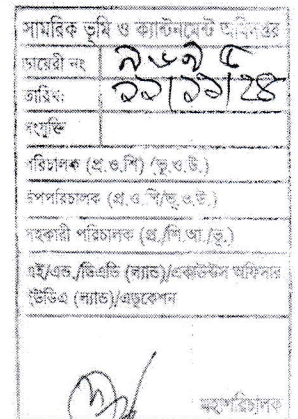 সামরিক ভূমি ও ক্যান্টনমেন্ট অধিদপ্তর
ডায়েরী নং ৯৮৯৫
তারিখঃ ১১/১১/২৪
সংযুক্তি
পরিচালক (প্র.ও.শি) /ভূ.ও.উ.)
উপপরিচালক (প্র.ও.শি/ভূ.ও.উ.)
সহকারী পরিচালক (প্র./শি.আ./ভূ.)
এই/এন্ড./ডিএডি (ল্যান্ড)/একাউন্টস অফিসার
ইউডিএ (ল্যান্ড)/এডুকেশন
মহাপরিচালক